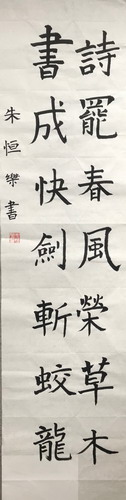 詩罷春風榮草木
書成快劍斬蛟龍
朱恒樂書